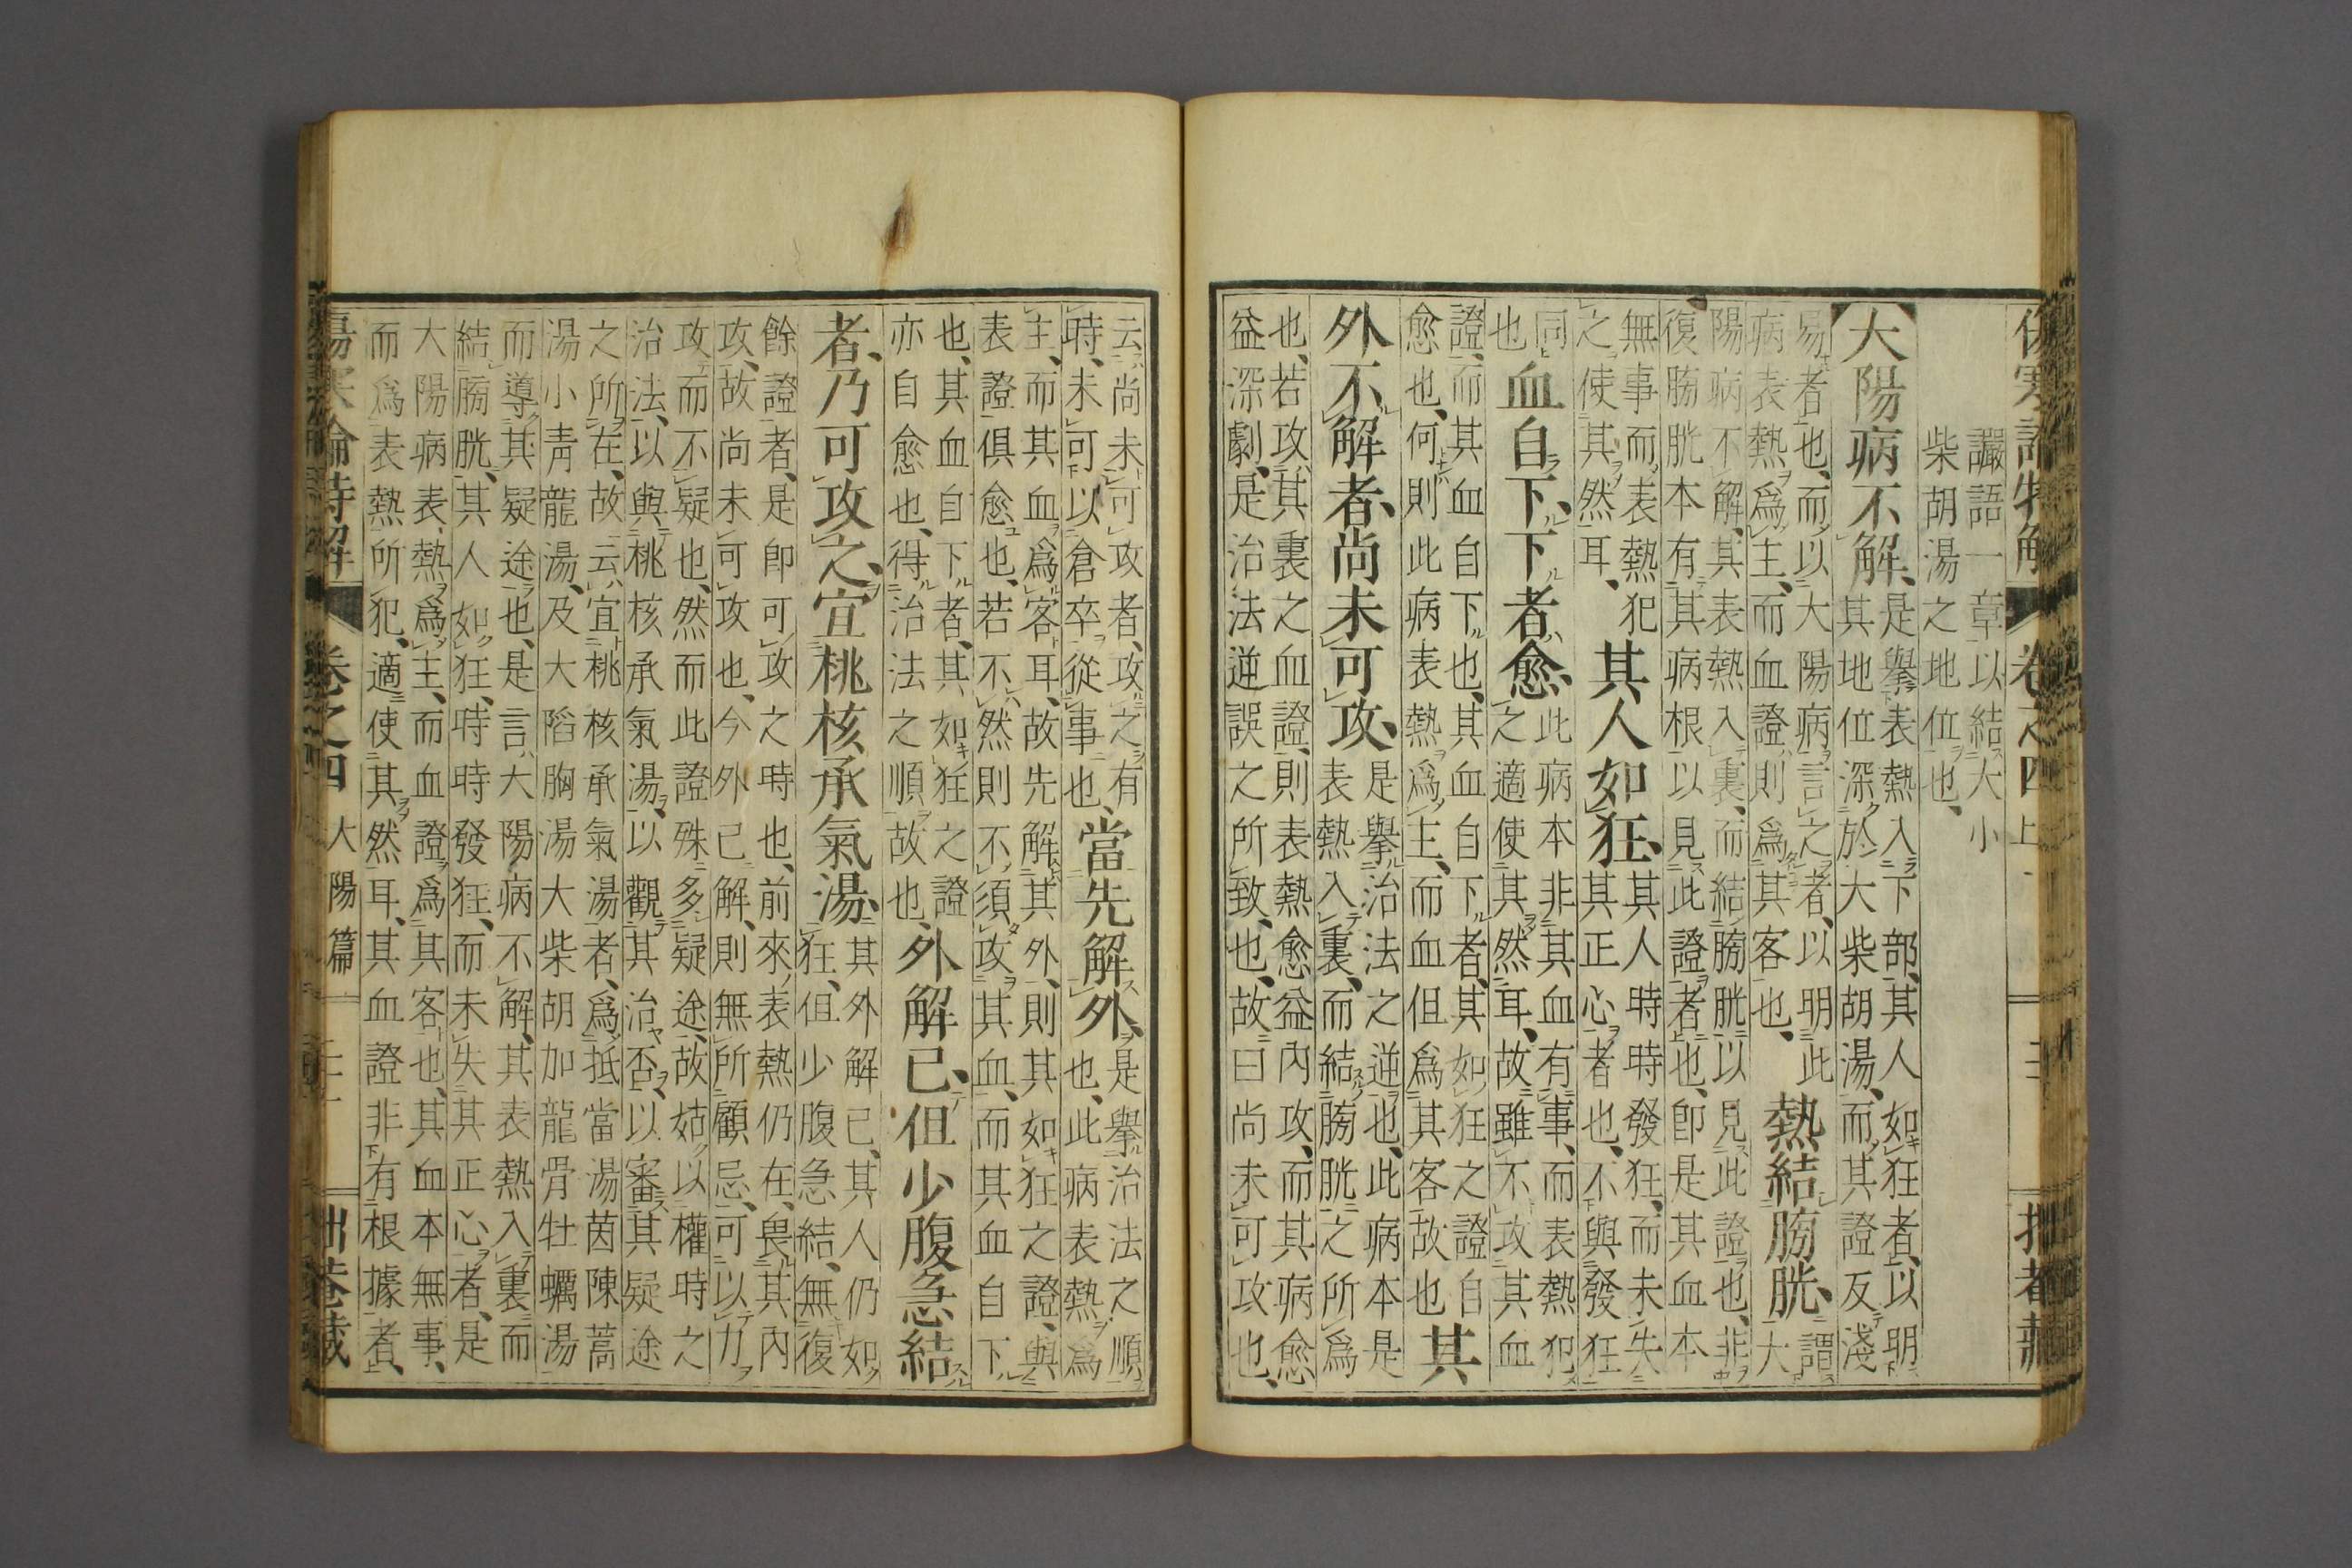 讝語一章以結大小
柴胡湯之地位也、
大陽病不解、
是擧表熱入下部、其人如狂者、以明
其地位深於大柴胡湯、而其證反淺
易者也、而以大陽病言之者、以明此
病表熱爲主、而血證則爲其客也、
熱結膀胱、
謂
大
陽病不解、其表熱入裏、而結膀胱以見此證也、非
復膀胱本有其病根以見此證者也、卽是其血本
無事而表熱犯
之使其然耳、
其人如狂、
其人時時發狂、而未失
其正心者也、不與發狂
同
也
血自下、下者愈、
此病本非其血有事、而表熱犯
之適使其然耳、故雖不攻其血
證、而其血自下也、其血自下者、其如狂之證自
愈也、何則此病表熱爲主、而血但爲其客故也
其
外不解者、尚未可攻、
是擧治法之逆也、此病本是
表熱入裏、而結膀胱之所爲
也、若攻其裏之血證、則表熱愈益內攻、而其病愈
益深劇、是治法逆誤之所致也、故曰尚未可攻也、
云尚未可攻者、攻之有
時、未可以倉卒從事也、
當先解外、
是擧治法之順
也、此病表熱爲
主、而其血爲客耳、故先解其外、則其如狂之證、與
表證俱愈也、若不然則不須攻其血、而其血自下
也、其血自下者、其如狂之證
亦自愈也、得治法之順故也、
外解已、但少腹急結
者、乃可攻之、宜桃核承氣湯、
其外解已、其人仍如
狂、但少腹急結、無復
餘證者、是卽可攻之時也、前來表熱仍在、畏其內
攻、故尚未可攻也、今外已解、則無所顧忌、可以力
攻而不疑也、然而此證殊多疑途、故姑以權時之
治法、以與桃核承氣湯、以觀其治否、以審其疑途
之所在、故云宜桃核承氣湯者、爲抵當湯茵陳蒿
湯小靑龍湯、及大陷胸湯大柴胡加龍骨牡蠣湯
而導其疑途也、是言大陽病不解、其表熱入裏而
結膀胱、其人如狂、時時發狂、而未失其正心者、是
大陽病表、熱爲主、而血證爲其客也、其血本無事、
而爲表熱所犯、適使其然耳、其血證非有根據者、
傷寒論特解 卷之四 大陽篇